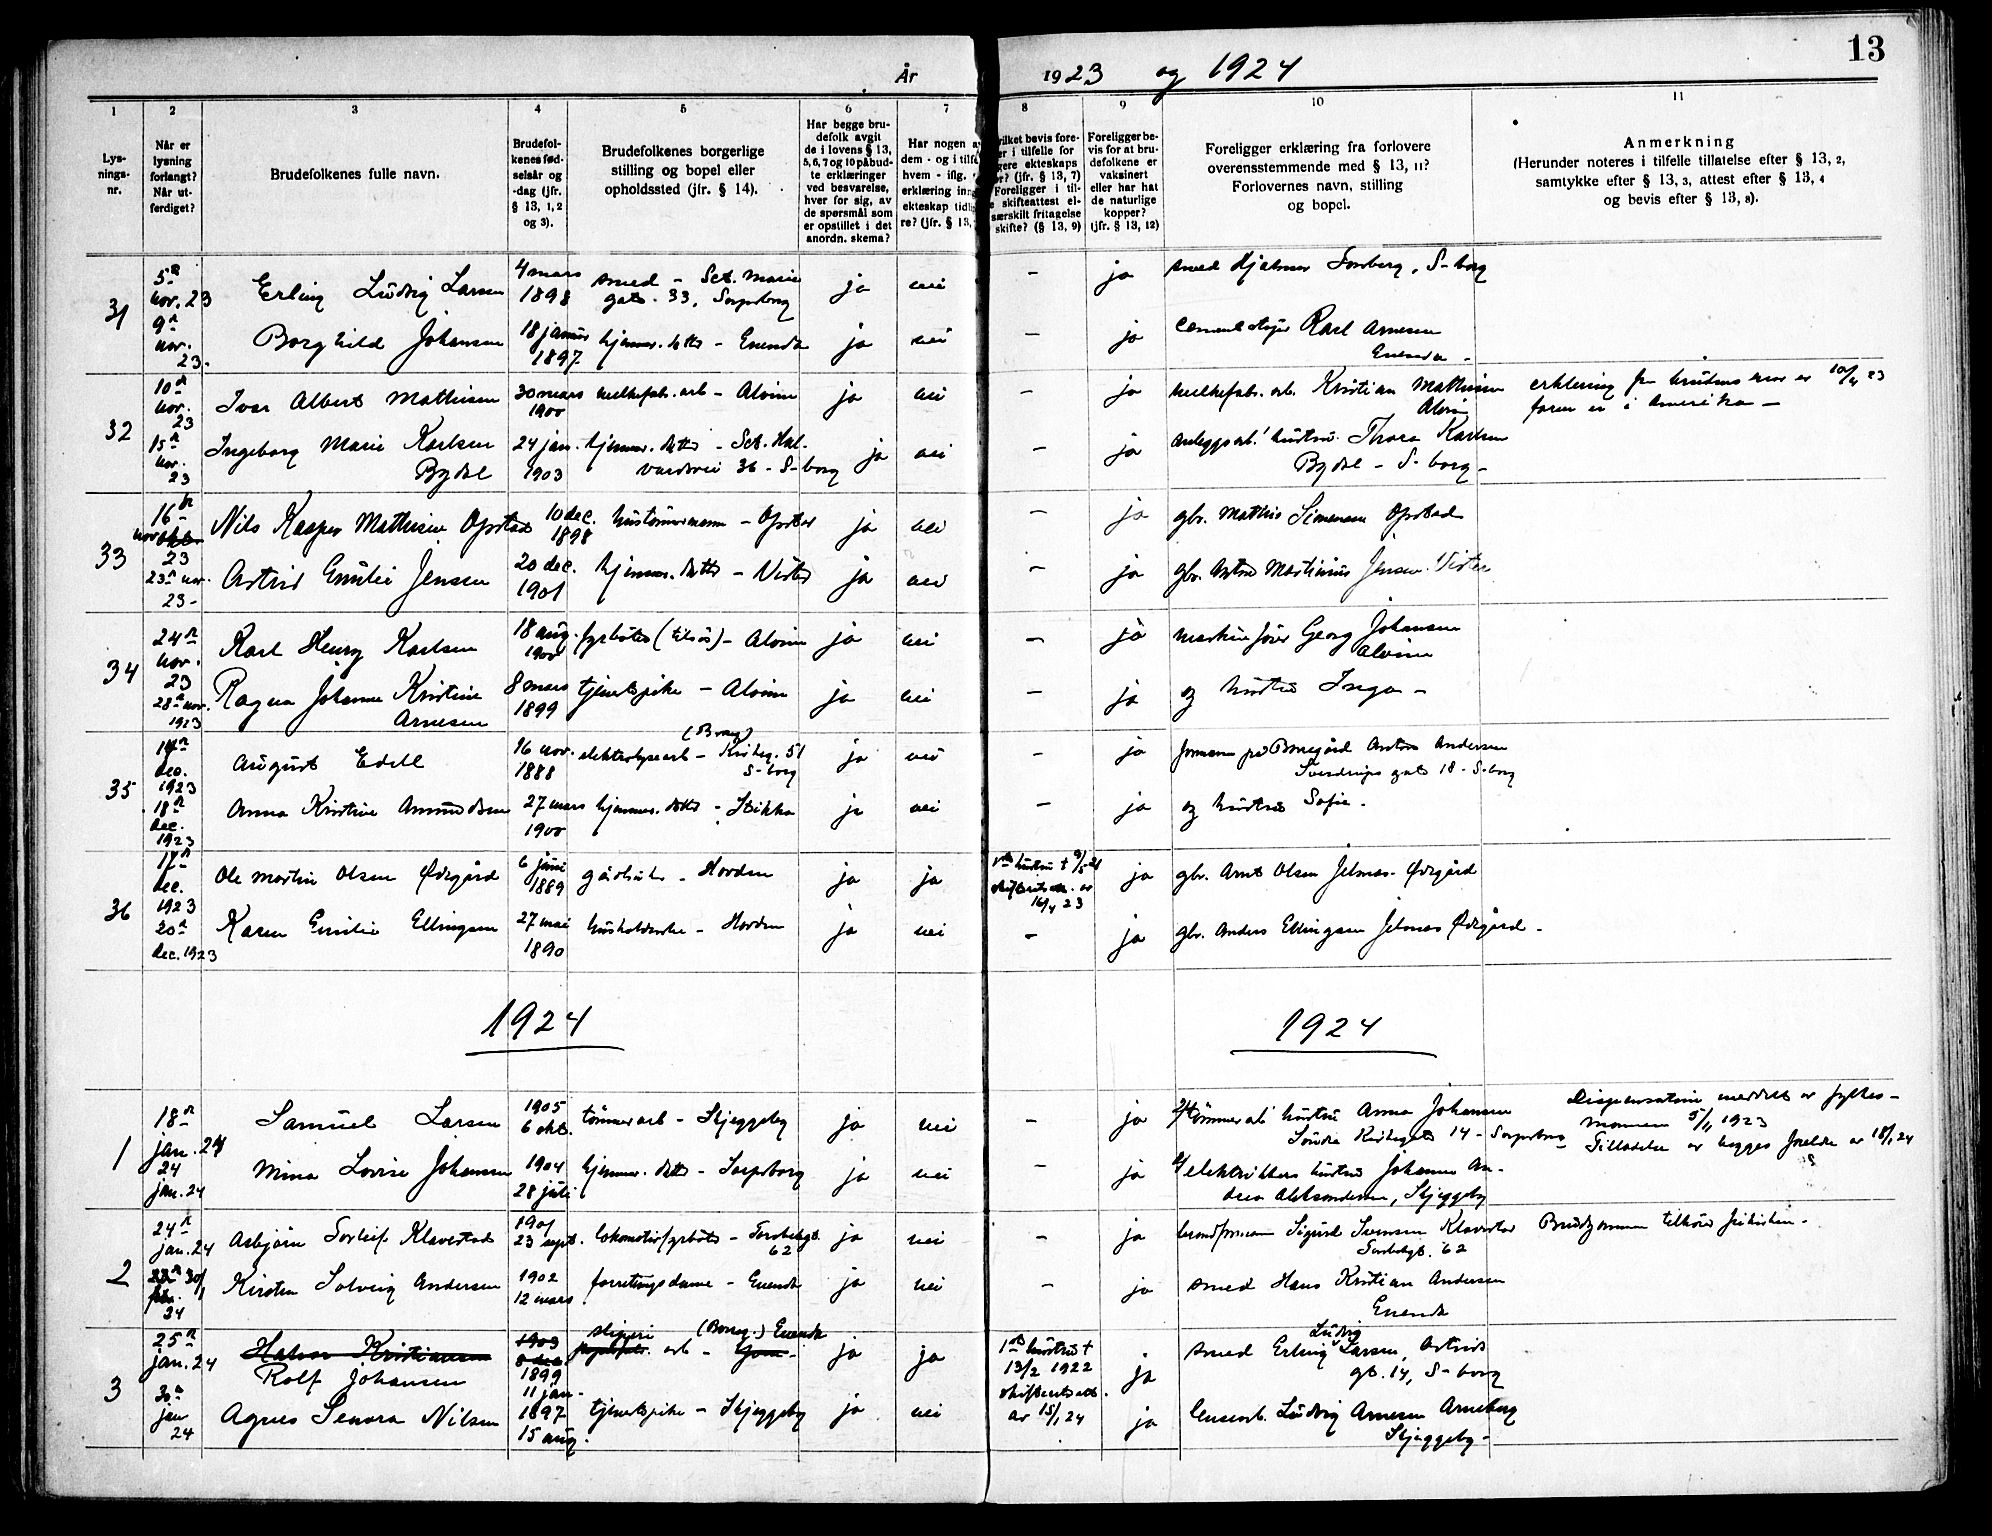 13
År 1923 og 1924
1 2 3 4 5 6 7 8 9 10 11
Lys-
nings-
nr.
Når er
lysning
forlangt?
Når ut-
ferdiget?
Brudefolkenes fulle navn.
Brudefol-
kenes fød-
selsår og
-dag (jfr.
§ 13, 1, 2
og 3).
Brudefolkenes borgerlige
stilling og bopel eller
opholdssted (jfr. § 14).
Har begge bru-
defolk avgit
de i lovens § 13,
5, 6, 7 og 10 påbud-
te erklæringer
ved besvarelse,
hver for sig, av
de spørsmål som
er opstillet i det
anordn. skema?
Har nogen a
dem - og i tilf
hvem - iflg.
erklæring inn
ekteskap tidli
re? (jfr. § 13,
ilket bevis fore-
er i tilfelle for
gere ekteskaps
r? (jfr. § 13, 7)
Foreligger i til-
e skifteattest el-
særskilt fritagelse
skifte? (§ 13, 9)
Foreligger be-
vis for at bru-
defolkene er
vaksinert
eller har hat
de naturlige
kopper?
(jfr. § 13, 12)
Foreligger erklæring fra forlovere
overensstemmende med § 13, 11?
Forlovernes navn, stilling
og bopel.
Anmerkning
(Herunder noteres i tilfelle tillatelse efter § 13, 2,
samtykke efter § 13, 3, attest efter § 13, 4
og bevis efter § 13, 8).
31
5 nov. 23
Erling Ludvig Larsen
4 mars 1898
smed - Sct. Marie
gate 33, Sarpsborg
ja nei - ja
smed Hjalmar, S-borg
9 nov. 23.
Borghild Johansen
18 januar 1897
hjemmev. datter - Enenda
ja nei - ja
Karl Arnesen
Enenda -
32
10 nov. 23
Ivar Albert Mathisen
30 mars 1900
melkefab. arb - Alvim
ja nei - ja
melkefab. arb. Kristian Mathisen
Alvim
erklering fra brudens mor er 10/4 23
faren er i Amerika -
15 nov. 23
Ingeborg Marie Karlsen
Bydal
24 jan. 1903
hjemmev. datter - Sct. Hal-
vardsvei 36 - S-borg
ja nei - ja
anleggsarb. hustru Thora Karlsen
Bydal - S-borg -
33
16 nov 23
Nils Kasper Mathisen Opstad
10 dec. 1898
hustømmermann - Opstad
ja nei - ja
gbr. Mathis Simensen Opstad
23 nov. 23 -
Astrid Emilie Jensen
20 dec. 1901
hjemmev. datter - Nister
ja nei - ja
gbr. Anton Martinius Jensen
34
24 nov. 23
Karl Henry Karlsen
18 aug. 1900
fyrbøter - Alvim
ja nei - ja
maskinfører Georg Johansen
Alvim
28 nov. 1923
Ragna Johanne Kristine
Arnesen
8 mars 1899
tjenestepike - Alvim
ja nei - ja
og hustru Inga -
35
14 dec. 1923
August Edell
16 nov. 1888
(Borreg.)
elektrolysearb - Kirkeg. 51
S-borg
ja nei - ja
formann på Borregård Anton Andersen
Sverdrups gate 18 - S-borg
18 dec. 1923
Anna Kristine Amundsen
27 mars 1900
hjemmev. datter - Stikka
ja nei - ja
og hustru Sofie -
36
17 dec. 1923
Ole Martin Olsen Ødegård
6 juni 1889
gårdbruker - Hovden
ja ja
1ste hustru †
skifteattest er
16/4 23
ja
gbr. Arnt Olsen Jelsnes - Ødegård
20 dec. 1923
Karen Emilie Ellingsen
27 mai 1890
husholderske - Hovden
ja nei - ja
gbr. Anders Ellingsen Jelsnes Ødegård -
1924 1924
1
18 jan. 24
Samuel Larsen
1905
6 okt.
tømmerarb - Skjeggeby
ja nei - ja
tømmerarb. hustru Anna Johansen
Søndre Kirkegate 14 - Sarpsborg
Dispensation meddelt av fylkes-
mannen 5/1 1923
Tilladelse av begges foreldre av 18/1 24
24 jan. 24
Mina Lovise Johansen
1904
28 juli
hjemmev. datter - Sarpsborg
ja nei - ja
elektrikkers hustru Johanne An-
drea Aleksandersen, Skjeggeby
2
24 jan. 24
Asbjørn Torleif Klavestad
1901
23 sept.
lokomotivfyrbøter - Torsbekgt.
62
ja nei - ja
brandformann Sigurd Svensen Klavestad
Torsbekgt. 62
Brudgommen tilhører frikirken -
30/1 24
Kirsten Solveig Andersen
1902
12 mars
forretningsdame - Enenda
ja nei - ja
smed Hans Kristian Andersen
Enenda
3
25 jan. 24
Halvor Kristiansen
Rolf Johansen
1903
8 dec
1899
11 jan.
sliperi (Borreg.) Enenda
arb -
ja ja
1ste hustru †
13/2 1922
skifteattest
av 15/1 24
ja
smed Erling Ludvig Larsen, Astrids
gt. 14, S-borg
30 jan 24
Agnes Senora Nilsen
1897
15 aug.
tjenestepike - Skjeggeby
ja nei ja
Ludvig Arnesen Arneberg
Skjeggeby -